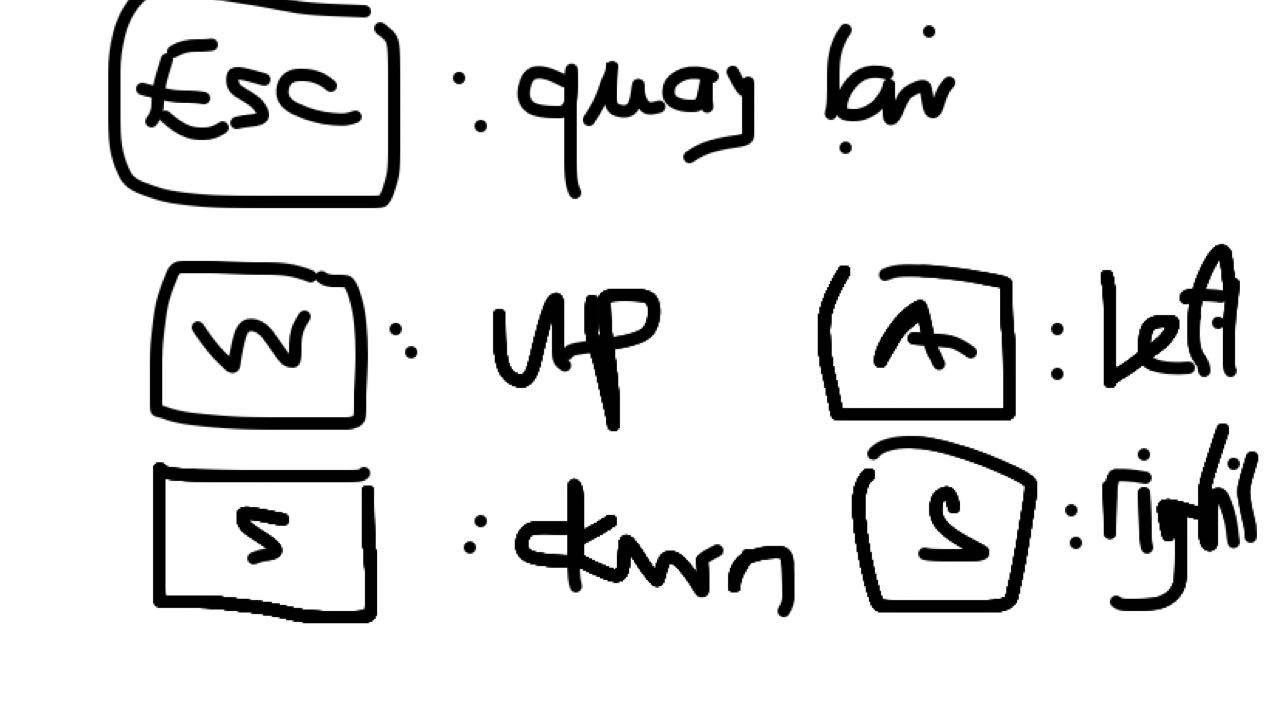 Esc : quay lại
W : UP A : Left
S : down S : right